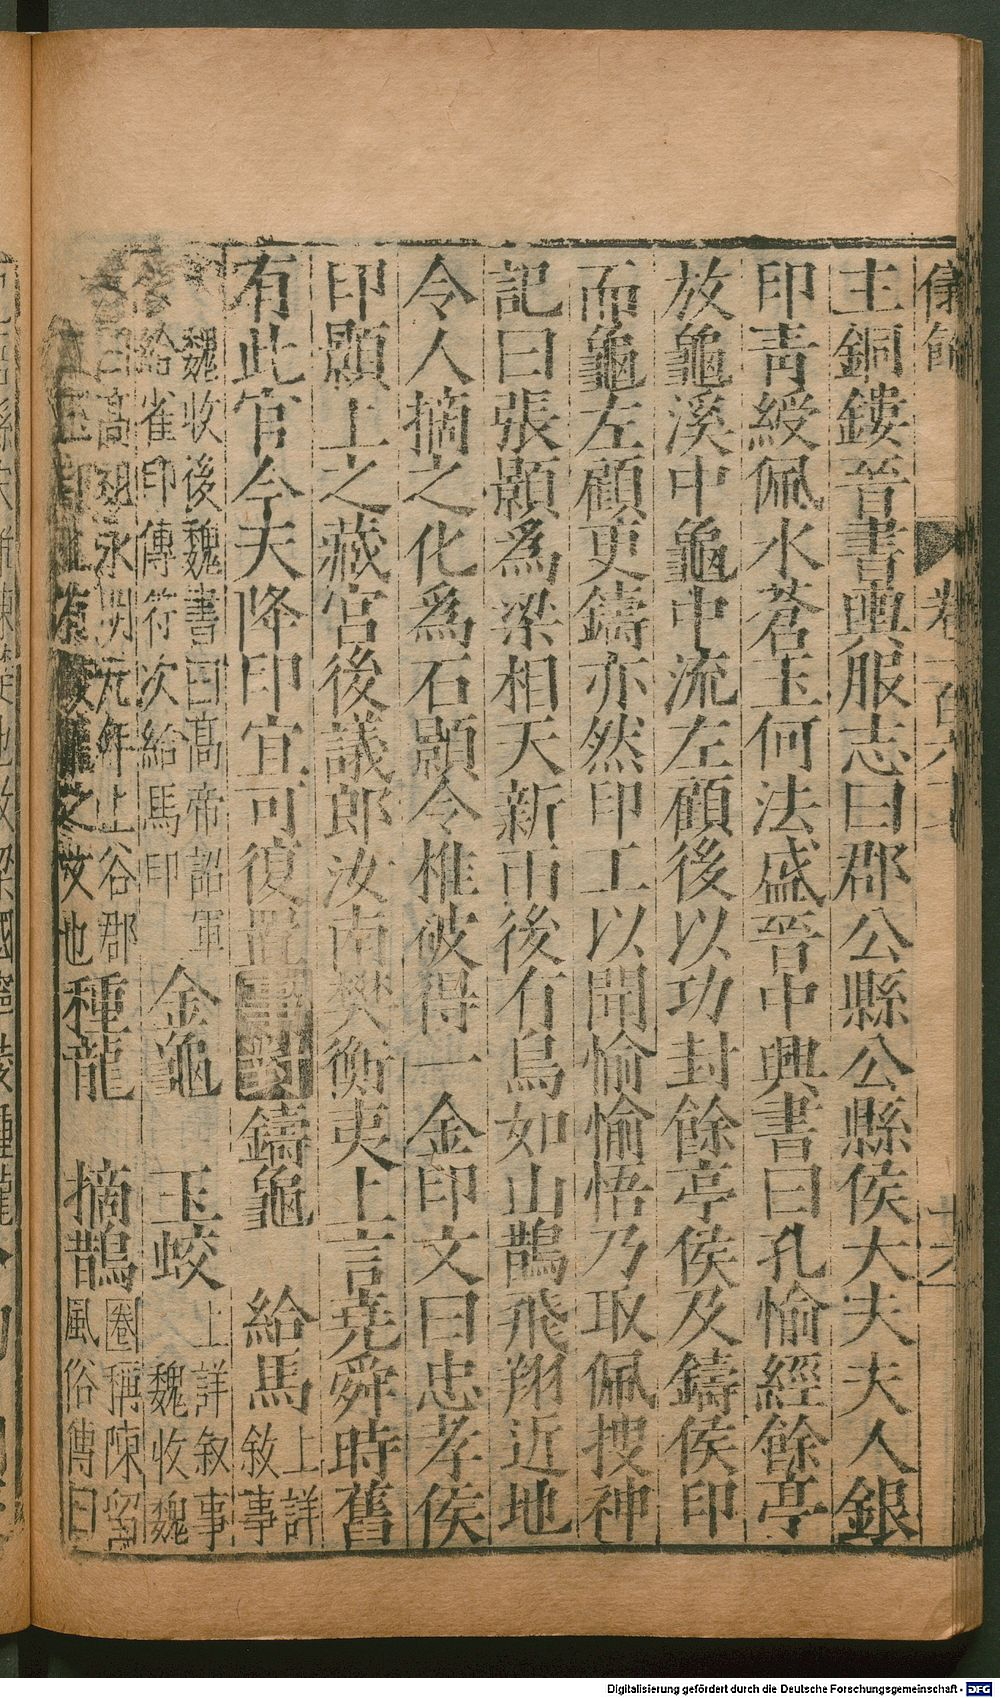 儀飾 卷一百六十七 十六
主銅鏤晉書輿服志曰郡公縣公縣侯大夫夫人銀
印青綬佩水蒼玉何法盛晉中興書曰孔愉經餘亭
放龜溪中龜中流左顧後以功封餘亭侯及鑄侯印
而龜左顧更鑄亦然印工以聞愉愉悟乃取佩搜神
記曰張顥爲梁相天新雨後有鳥如山鵲飛翔近地
令人摘之化爲石顥令椎破得一金印文曰忠孝侯
印顥上之藏宮後議郎汝南樊衡夷上言堯舜時舊
有此官今天降印宜可復置 事對 鑄龜 給馬 上詳敘事
魏收後魏書曰高帝詔軍給雀印傳符次給馬印 金龜 玉蛟 上詳敘事魏收魏
曰高祖永明元年上谷郡 之文也 種龍 摘鵲 圈稱陳留風俗傳曰
Digitalisierung gefördert durch die Deutsche Forschungsgemeinschaft - DFG